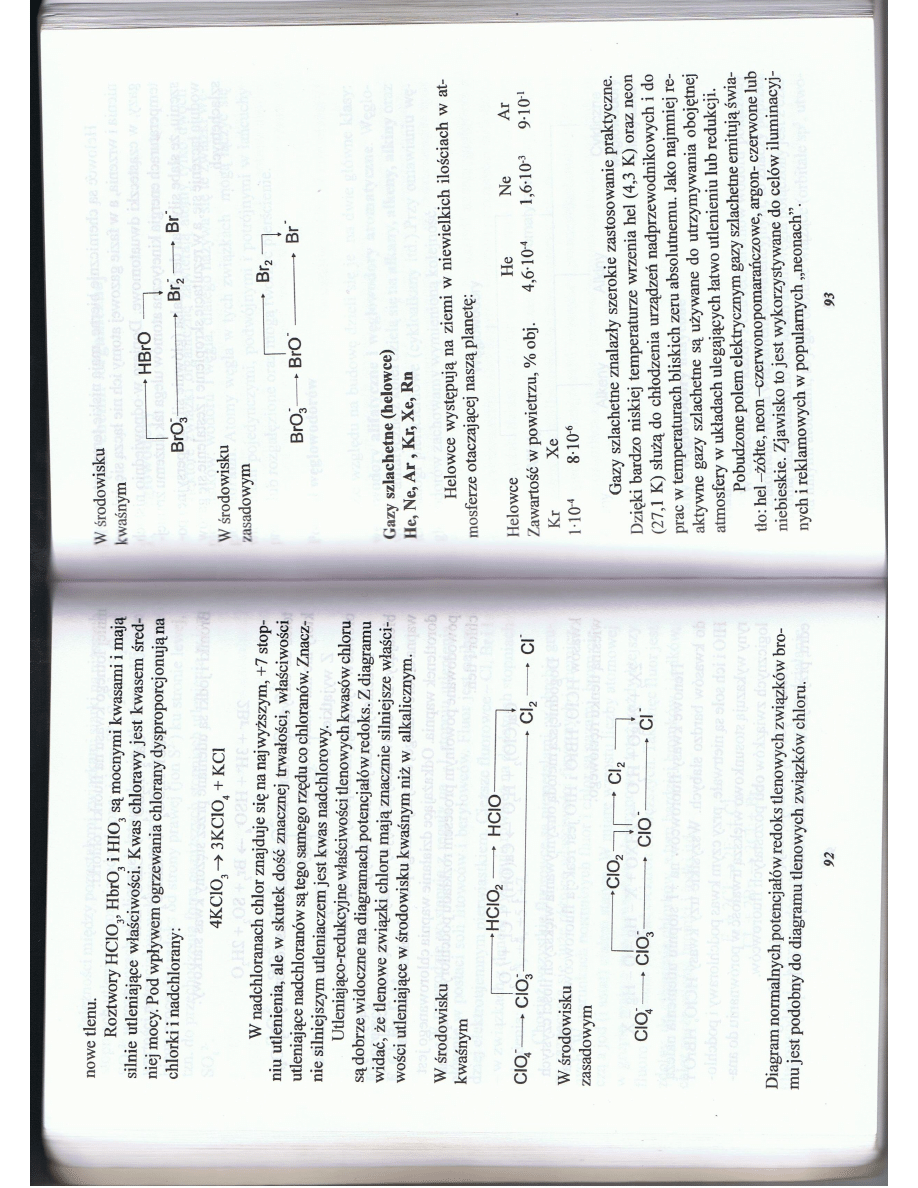 nowe tlenu.
Roztwory HClO₃, HbrO₃ i HIO₃ są mocnymi kwasami i mają
silnie utleniające właściwości. Kwas chlorawy jest kwasem śred-
niej mocy. Pod wpływem ogrzewania chlorany dysproporcjonują na
chlorki i nadchlorany:
4KClO₃ → 3KClO₄ + KCl
W nadchloranach chlor znajduje się na najwyższym, +7 stop-
niu utlenienia, ale w skutek dość znacznej trwałości, właściwości
utleniające nadchloranów są tego samego rzędu co chloranów. Znacz-
nie silniejszym utleniaczem jest kwas nadchlorowy.
Utleniająco-redukcyjne właściwości tlenowych kwasów chloru
są dobrze widoczne na diagramach potencjałów redoks. Z diagramu
widać, że tlenowe związki chloru mają znacznie silniejsze właści-
wości utleniające w środowisku kwaśnym niż w alkalicznym.
W środowisku
kwaśnym
HClO₂ → HClO
ClO₄⁻ → ClO₃⁻ → Cl₂ → Cl⁻
W środowisku
zasadowym
ClO₂ → Cl₂
ClO₄⁻ → ClO₃⁻ → ClO⁻ → Cl⁻
Diagram normalnych potencjałów redoks tlenowych związków bro-
mu jest podobny do diagramu tlenowych związków chloru.
92
W środowisku
kwaśnym
HBrO
BrO₃⁻ → Br₂⁻ → Br⁻
W środowisku
zasadowym
Br₂
BrO₃⁻ → BrO⁻ → Br⁻
Gazy szlachetne (helowce)
He, Ne, Ar , Kr, Xe, Rn
Helowce występują na ziemi w niewielkich ilościach w at-
mosferze otaczającej naszą planetę:
Helowce He Ne Ar
Zawartość w powietrzu, % obj. 4,6·10⁻⁴ 1,6·10⁻³ 9·10⁻¹
Kr Xe
1·10⁻⁴ 8·10⁻⁶
Gazy szlachetne znalazły szerokie zastosowanie praktyczne.
Dzięki bardzo niskiej temperaturze wrzenia hel (4,3 K) oraz neon
(27,1 K) służą do chłodzenia urządzeń nadprzewodnikowych i do
prac w temperaturach bliskich zeru absolutnemu. Jako najmniej re-
aktywne gazy szlachetne są używane do utrzymywania obojętnej
atmosfery w układach ulegających łatwo utlenieniu lub redukcji.
Pobudzone polem elektrycznym gazy szlachetne emitują świa-
tło: hel –żółte, neon –czerwonopomarańczowe, argon- czerwone lub
niebieskie. Zjawisko to jest wykorzystywane do celów iluminacyj-
nych i reklamowych w popularnych „neonach”.
93